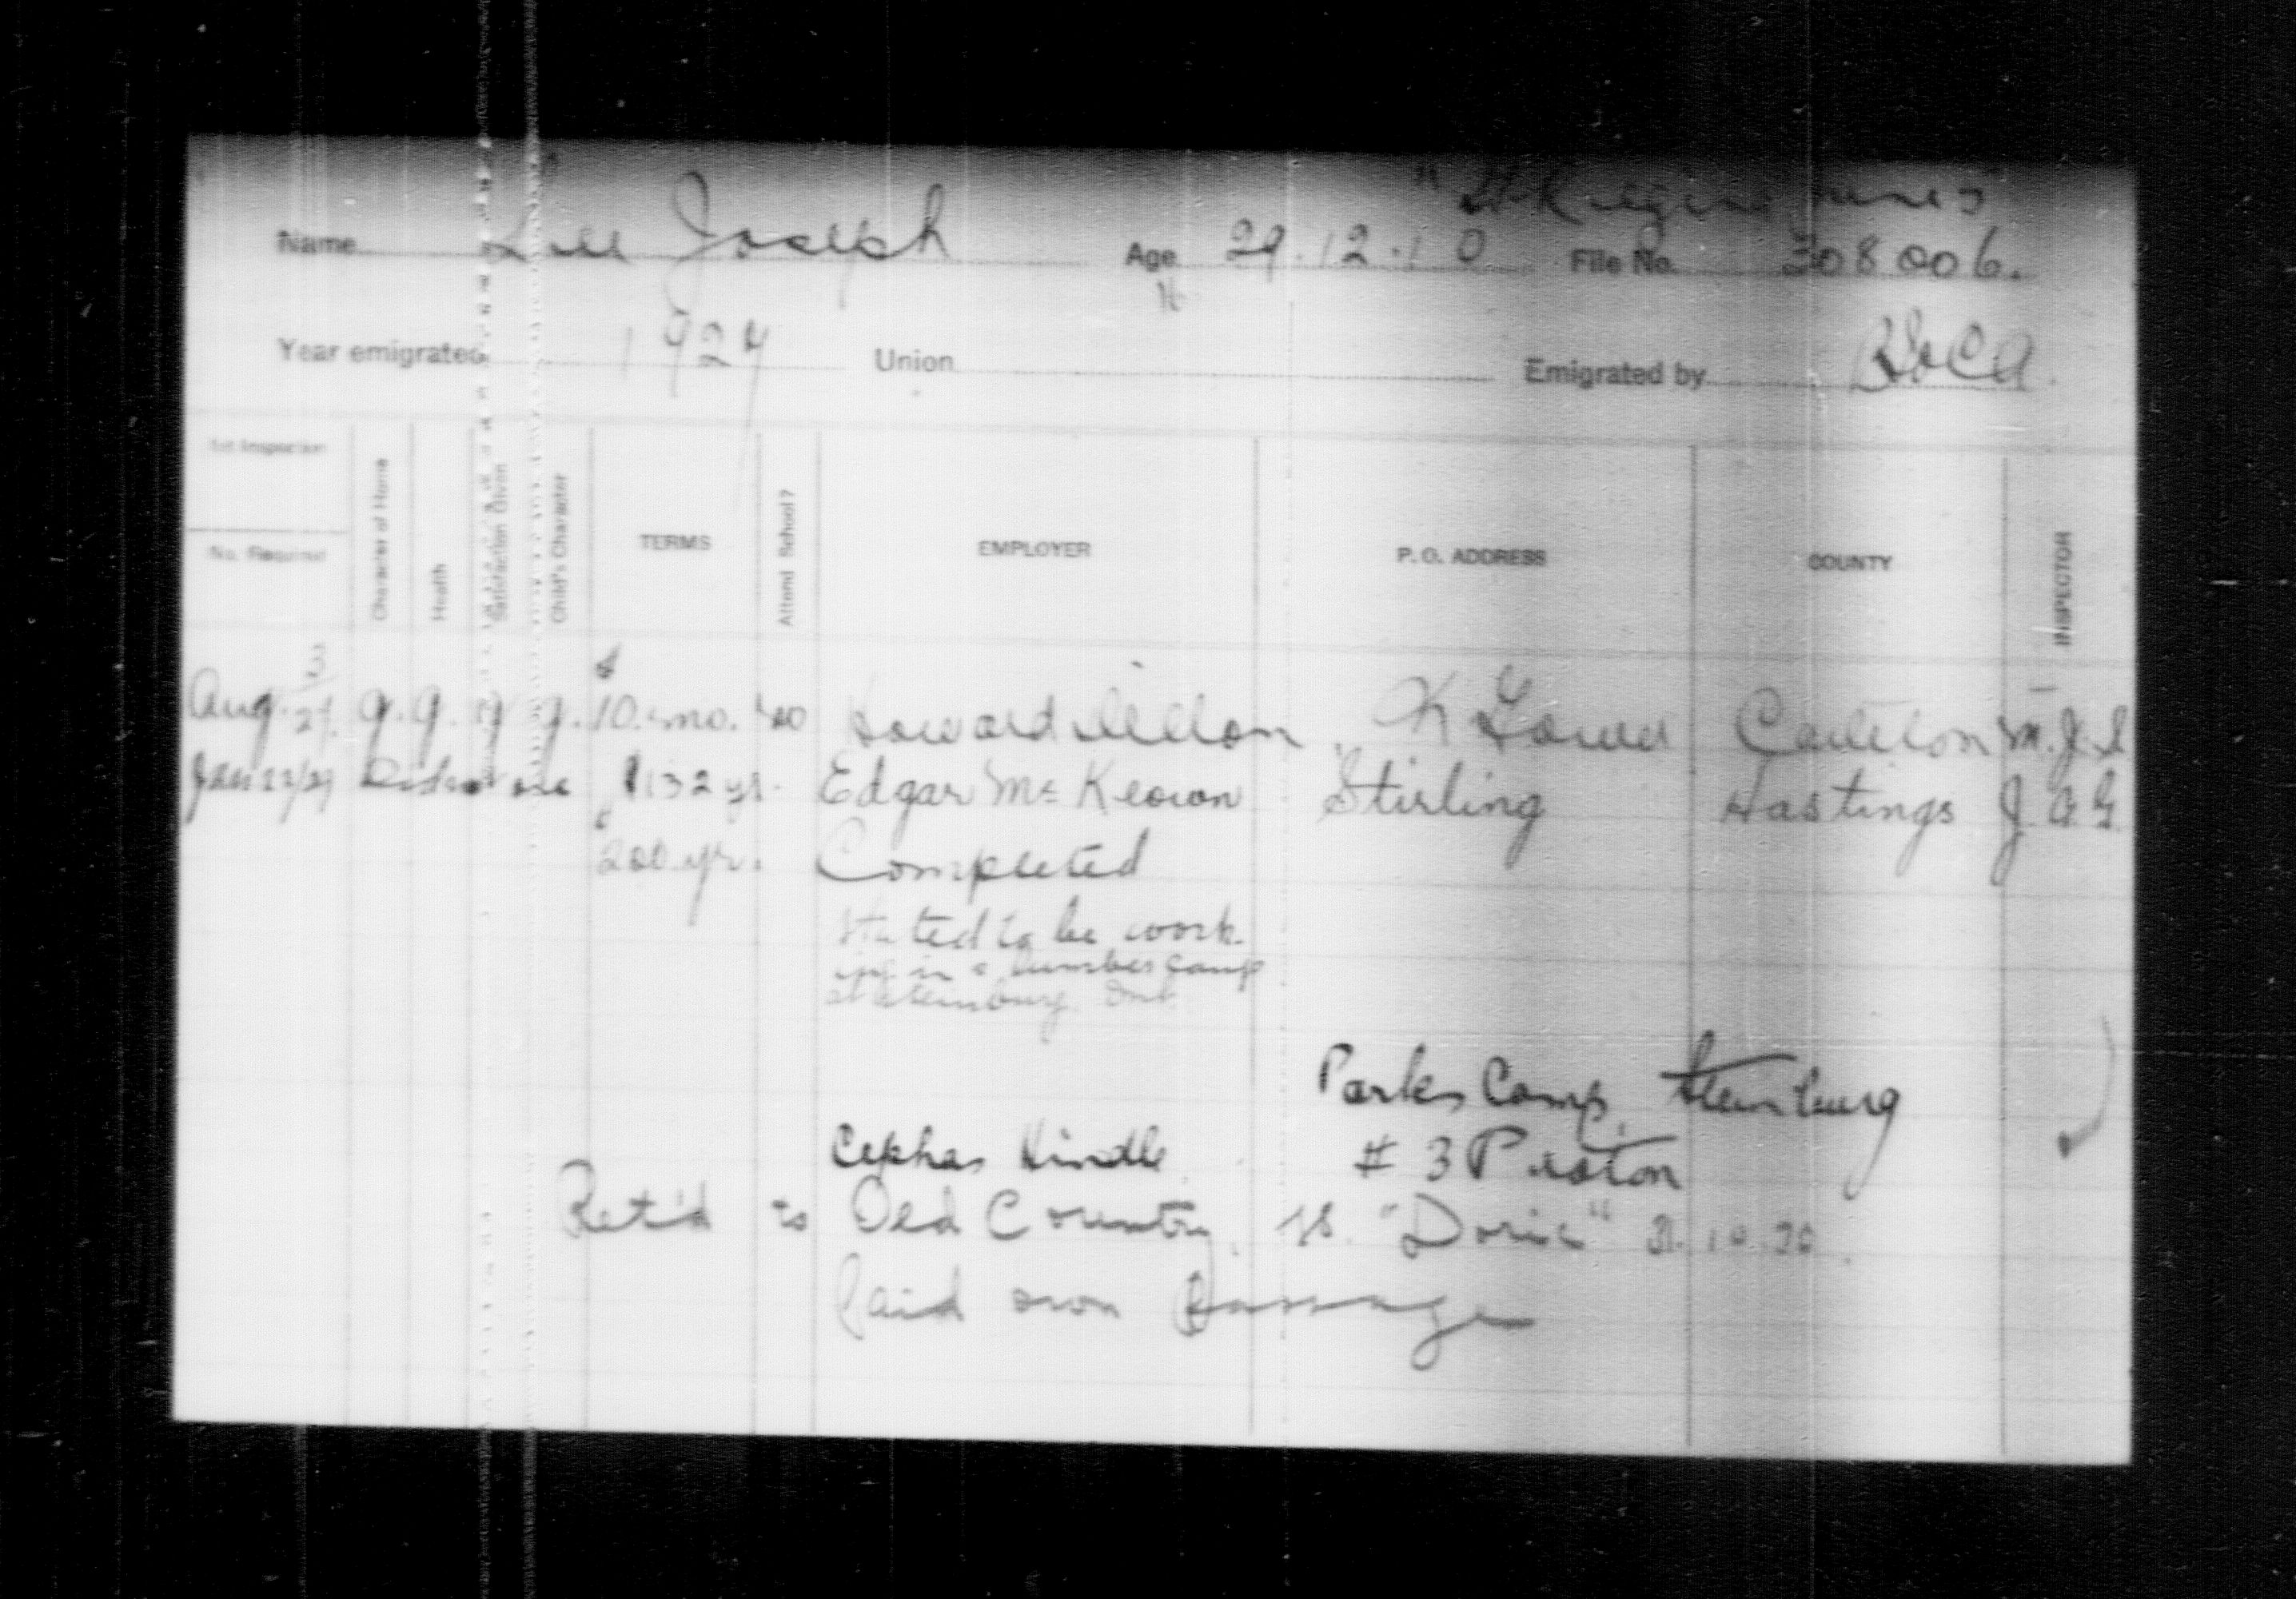 Name Lee Joseph Age 29.12.10 File No. 308006.
16
Year emigrated 1927 Union Emigrated by
1st Inspection
No. Required
Character of Home
Health
Satisfaction Given
Child's Character
TERMS
Attend School?
EMPLOYER
P.O. ADDRESS
COUNTY
INSPECTOR
Aug. g. g. g g. $10. mo. Howard N Gower Carleton M.J.
Jan 23/29 $132 yr. Edgar McKeown Stirling Hastings J.A.G.
$200 yr. Completed
Stated to be work
ing in a lumber camp
at Ont.
Parks Camp,
Cephas Hindle #3
Ret'd to Old Country, "Doric"
Paid own Passage